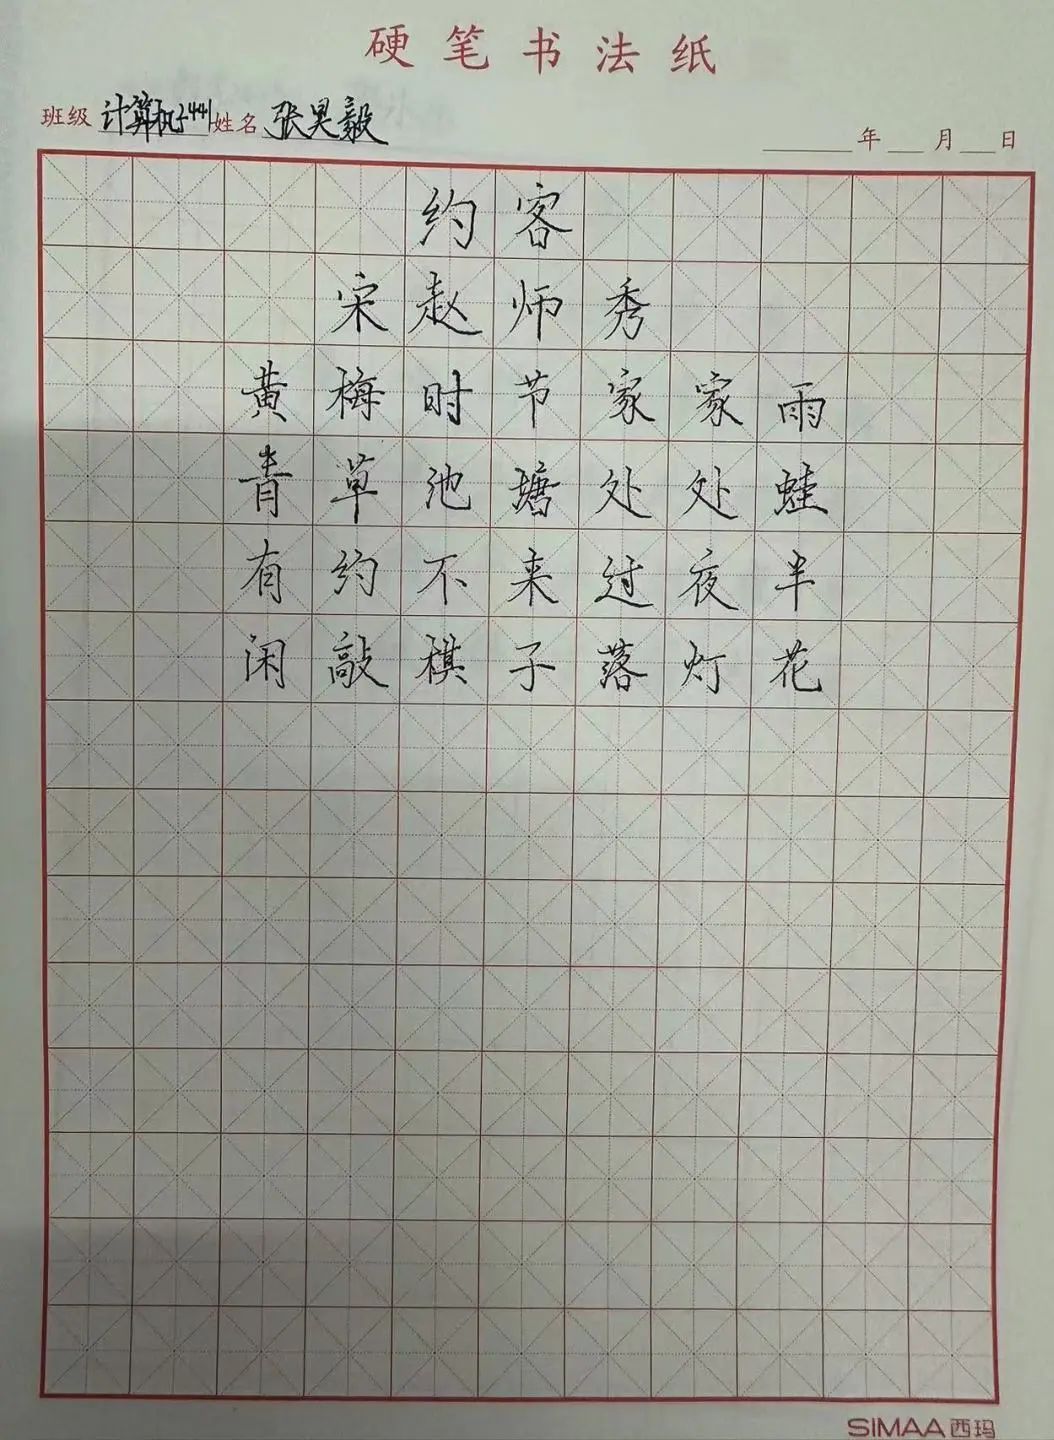 硬笔书法纸
班级 计算机2441 姓名 张昊毅 年 月 日
约客
宋赵师秀
黄梅时节家家雨
青草池塘处处蛙
有约不来过夜半
闲敲棋子落灯花
SIMAA西玛